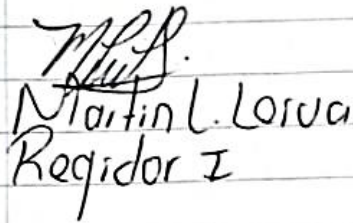 Martin L. Lorva
Regidor I